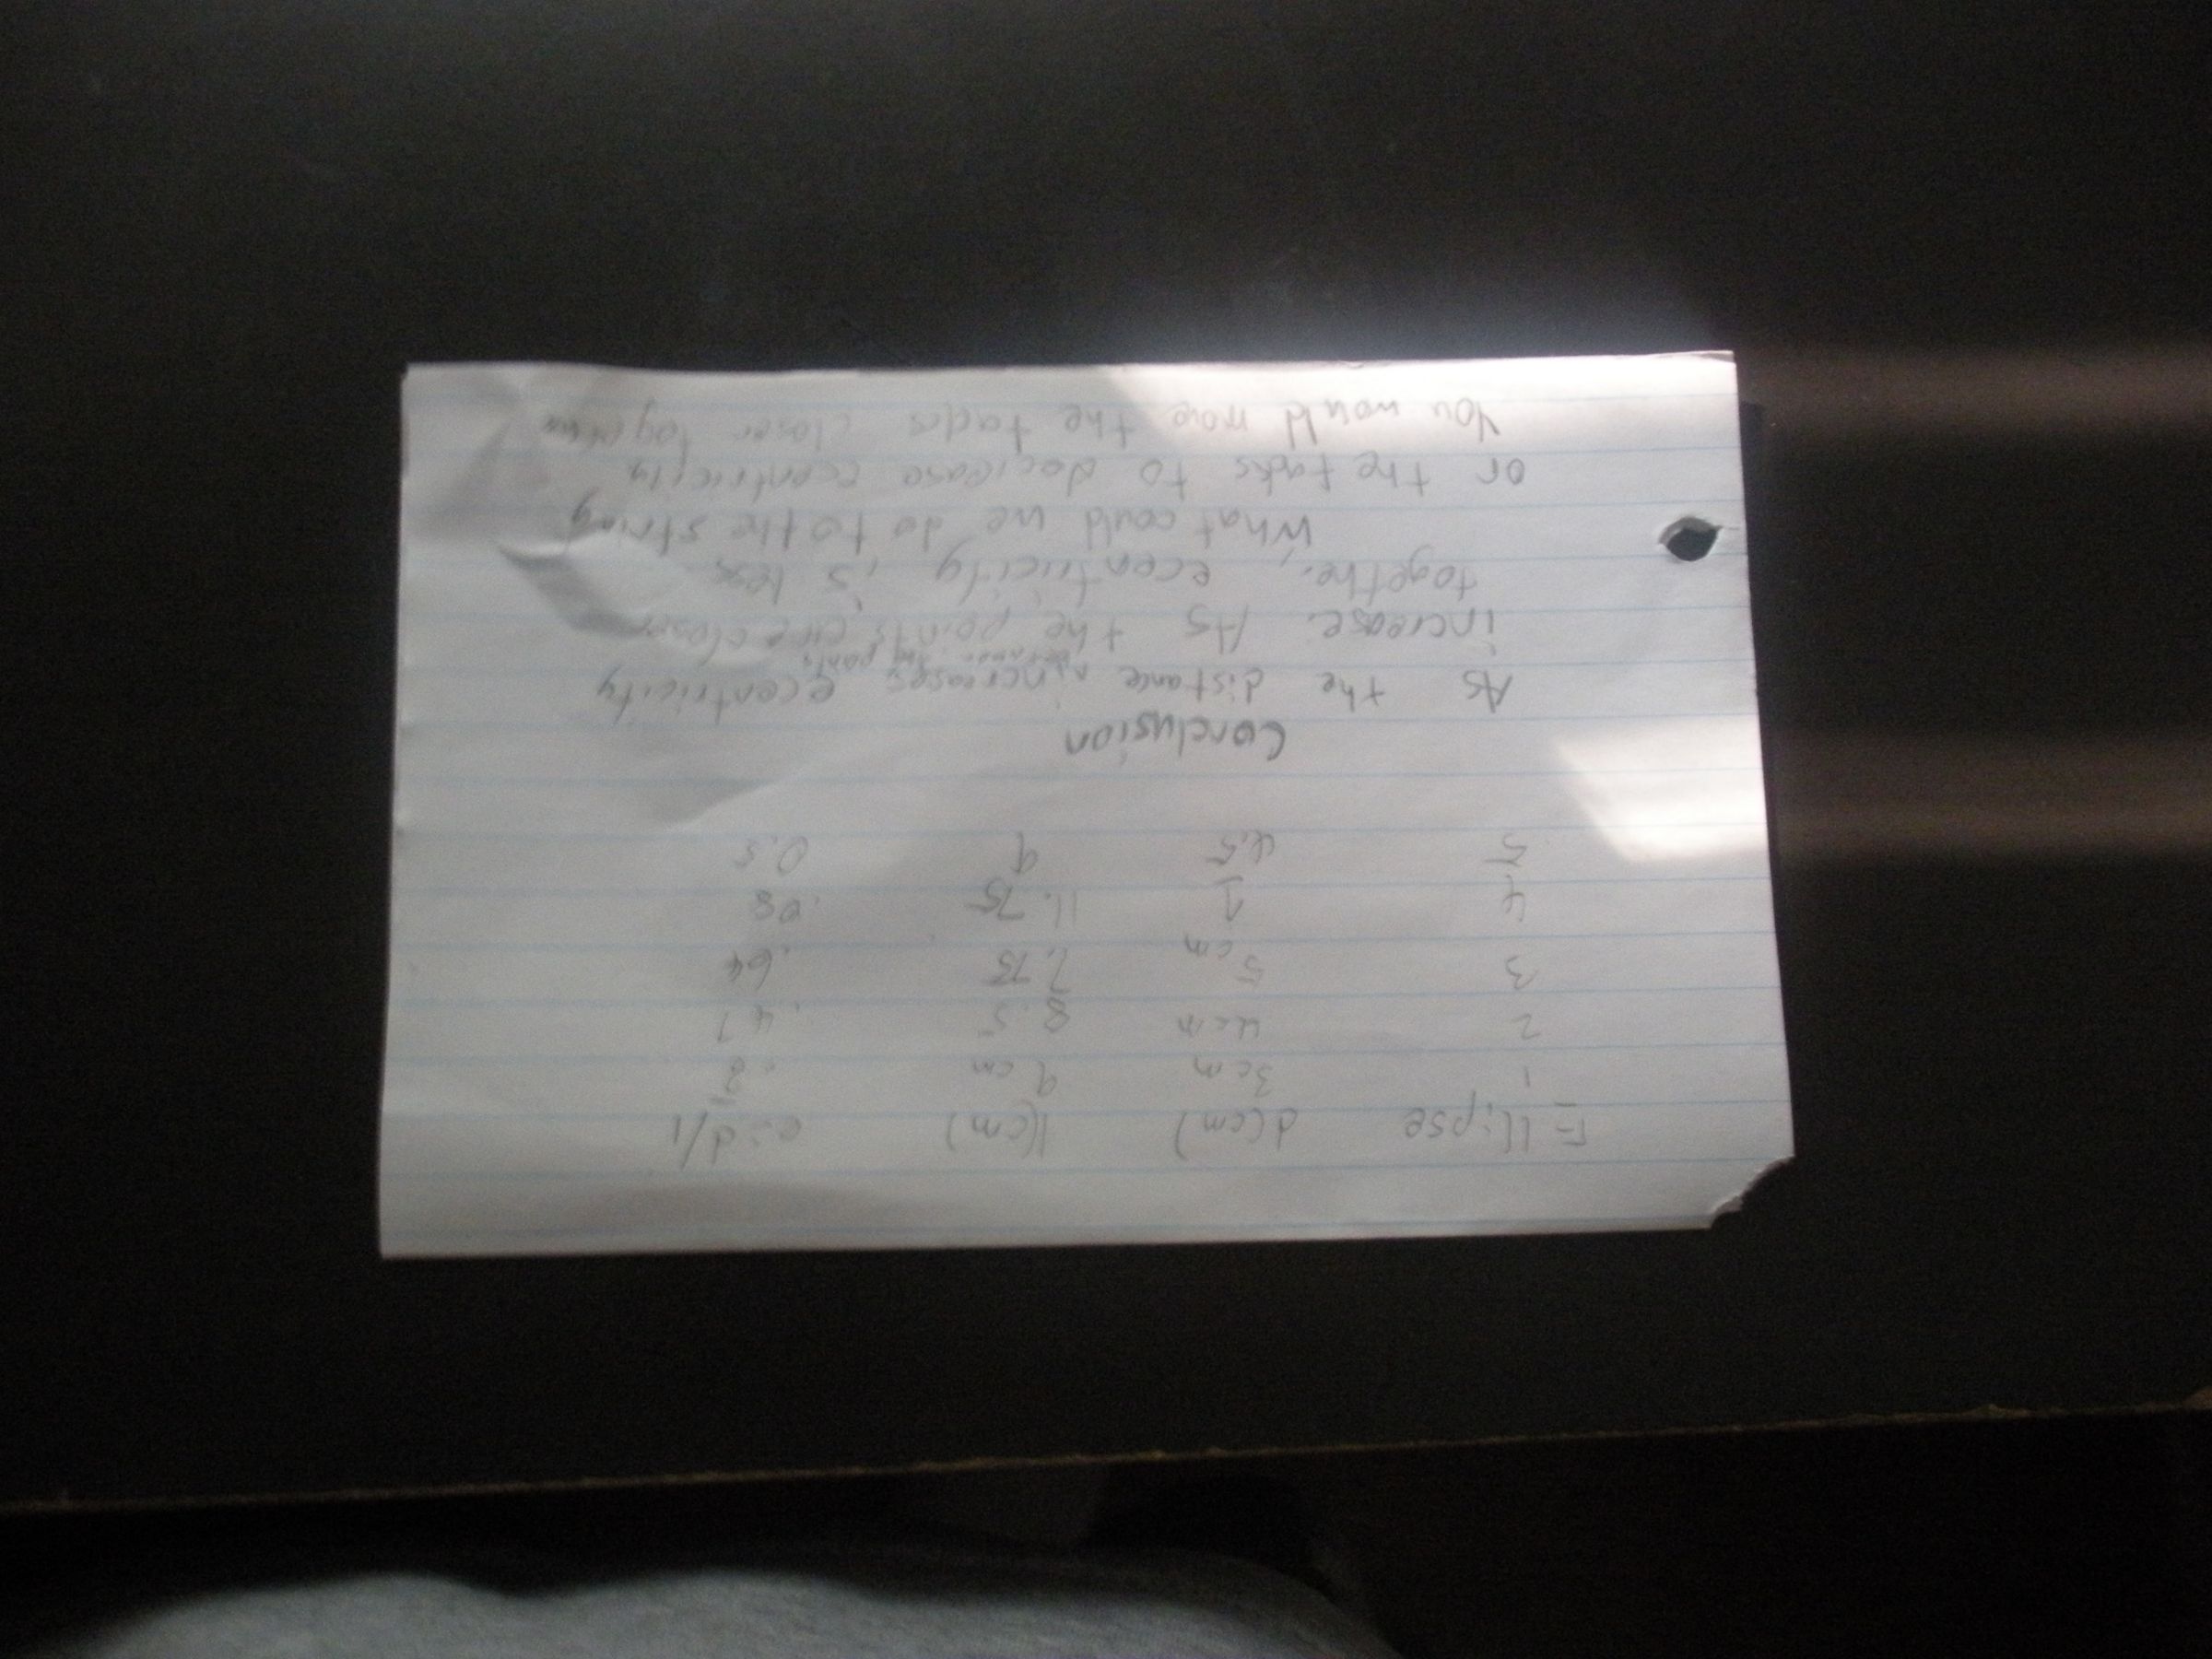 Ellipse d(cm) l(cm) e=d/l
1 3cm 9cm
2 4cm 8.5 .47
3 5cm 7.75 .64
4 1 11.75 .08
5 4.5 9 0.5
Conclusion
As the distance increases ecentricity
increase. As the points are closer
together, ecentricity is less
What could we do to the string
or the taks to decrease ecentricity
You would move the tacks closer